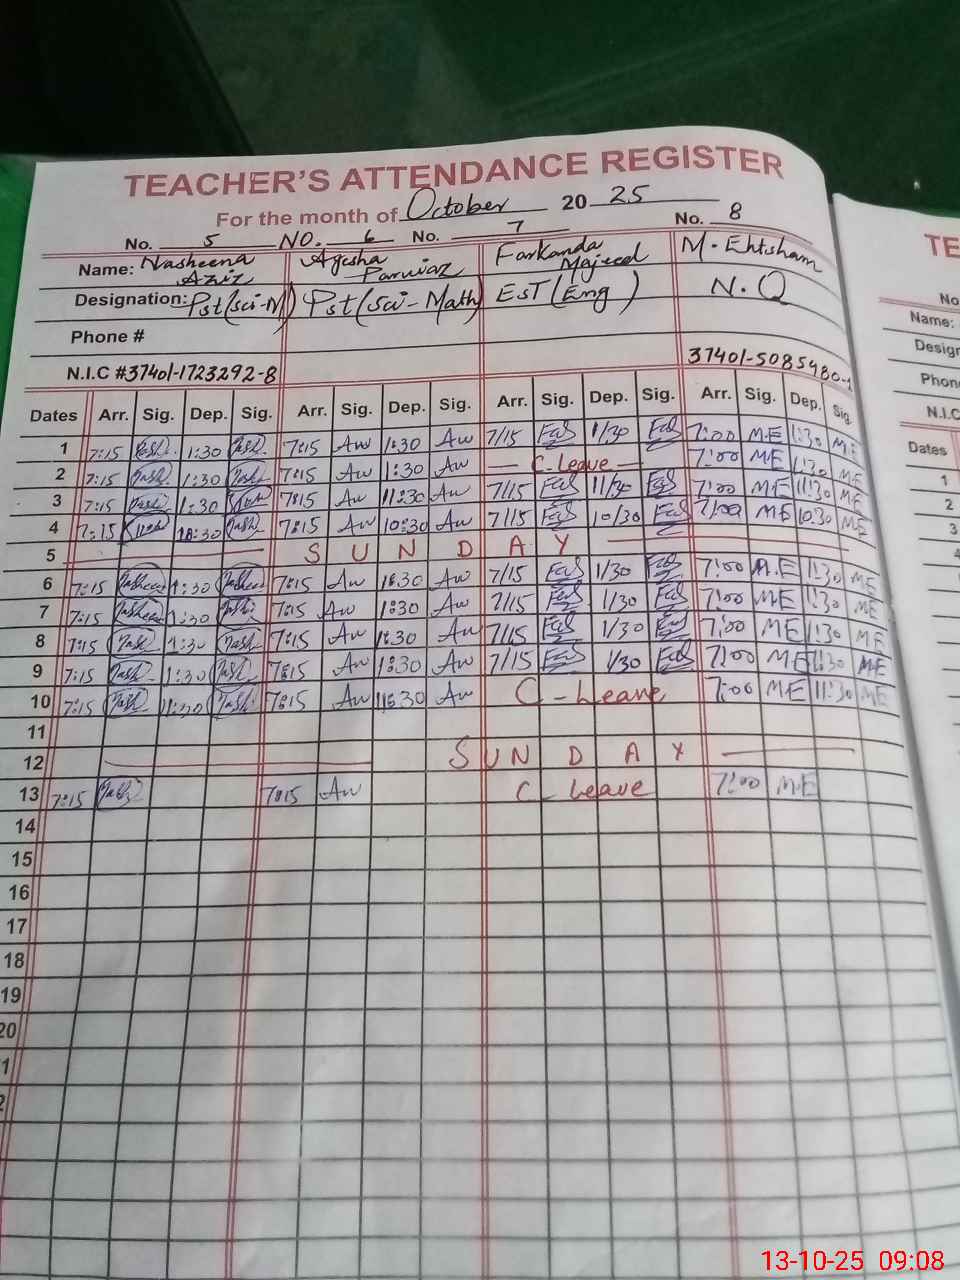 TEACHER'S ATTENDANCE REGISTER
For the month of October 2025
No. 5 NO. 6 No. 7 No. 8
Name: Nasheena Aziz Ayesha Parviaz Farkanda Majeed M. Ehtsham
Designation: Pst(sci-M) Pst(Sci-Math) EST(Eng) N.Q
Phone #
N.I.C #37401-1723292-8 37401-5085980-1
Dates Arr. Sig. Dep. Sig. Arr. Sig. Dep. Sig. Arr. Sig. Dep. Sig. Arr. Sig. Dep. Sig.
1 7:15 1:30 7:15 Aw 1:30 Aw 7/15 1/30 7:00 M.E 1:30 M.E
2 7:15 1:30 7:15 Aw 1:30 Aw C-Leave 7:00 ME 1:30 ME
3 7:15 1:30 7:15 Aw 11:30 Aw 7/15 11/30 7:00 ME 11:30 ME
4 7:15 10:30 7:15 Aw 10:30 Aw 7/15 10/30 7:00 ME 10:30 ME
5 SUNDAY
6 7:15 1:30 7:15 Aw 1:30 Aw 7/15 1/30 7:00 M.E 1:30 ME
7 7:15 1:30 7:15 Aw 1:30 Aw 7/15 1/30 7:00 ME 1:30 ME
8 7:15 1:30 7:15 Aw 1:30 Aw 7/15 1/30 7:00 ME 1:30 ME
9 7:15 1:30 7:15 Aw 1:30 Aw 7/15 1/30 7:00 ME 1:30 ME
10 7:15 11:30 7:15 Aw 11:30 Aw C-Leave 7:00 ME 11:30 ME
11
12 SUNDAY
13 7:15 7:15 Aw C-Leave 7:00 ME
14
15
16
17
18
19
20
TE
No
Name:
Design
Phon
N.I.C
Dates
1
2
3
13-10-25 09:08